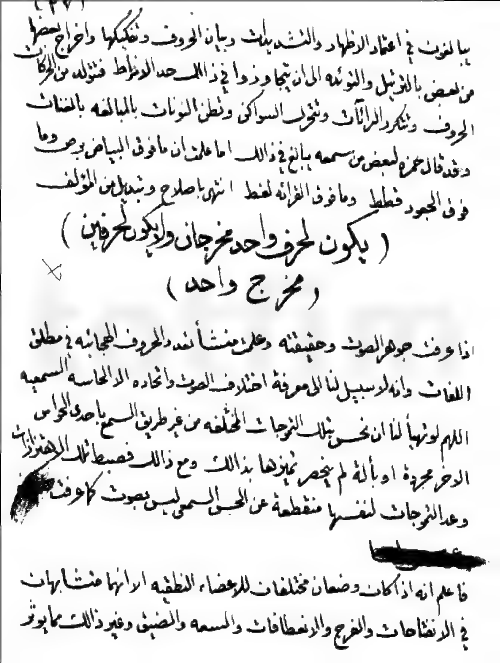 (٢٧)
يبالغون في اعتماد الاظهار والتشديدات وبيان الحروف وتفكيكها واخراج بعضها
من بعض بالترتيل والتوئده الى ان يتجاوزوا في ذالك حد الافراط فتتولد من الحركات
الحروف وتتكرر الراآت وتتحرك السواكن وتطن النونات بالمبالغه بالغنات
وقد قال حمزه لبعض من سمعه يبالغ في ذالك اما علمت ان مافوق البياض برص وما
فوق الجعود قطط وما فوق القرائه لغط انتهى باصلاح وتبديل من المؤلف
(يكون لحرف واحد مخرجان ولا يكون لحرفين)
(مخرج واحد)
اذا عرفت جوهر الصوت وحقيقته وعلمت منشأ تعدد الحروف الهجائيه في مطلق
اللغات وانه لا سبيل لنا الى معرفة اختلاف الصوت واتحاده الا الحاسه السمعيه
اللهم لو تهيأ لنا ان نحس بتلك التموجات المختلفه من غير طريق السمع باحدى الحواس
الاخر مجردة او بألة لم ينحصر تمايزها بذالك ومع ذالك فضبط تلك الاهتزازات
وعد التموجات لنفسها منقطعة عن الحس السمعي ليس بصوت كما عرفت
فاعلم انه اذا كان وضعان مختلفان للاعضاء النطقيه الا انهما متشابهان
في الانفتاحات والفرج والانعطافات والسعه والضيق وغير ذالك مما يوثر